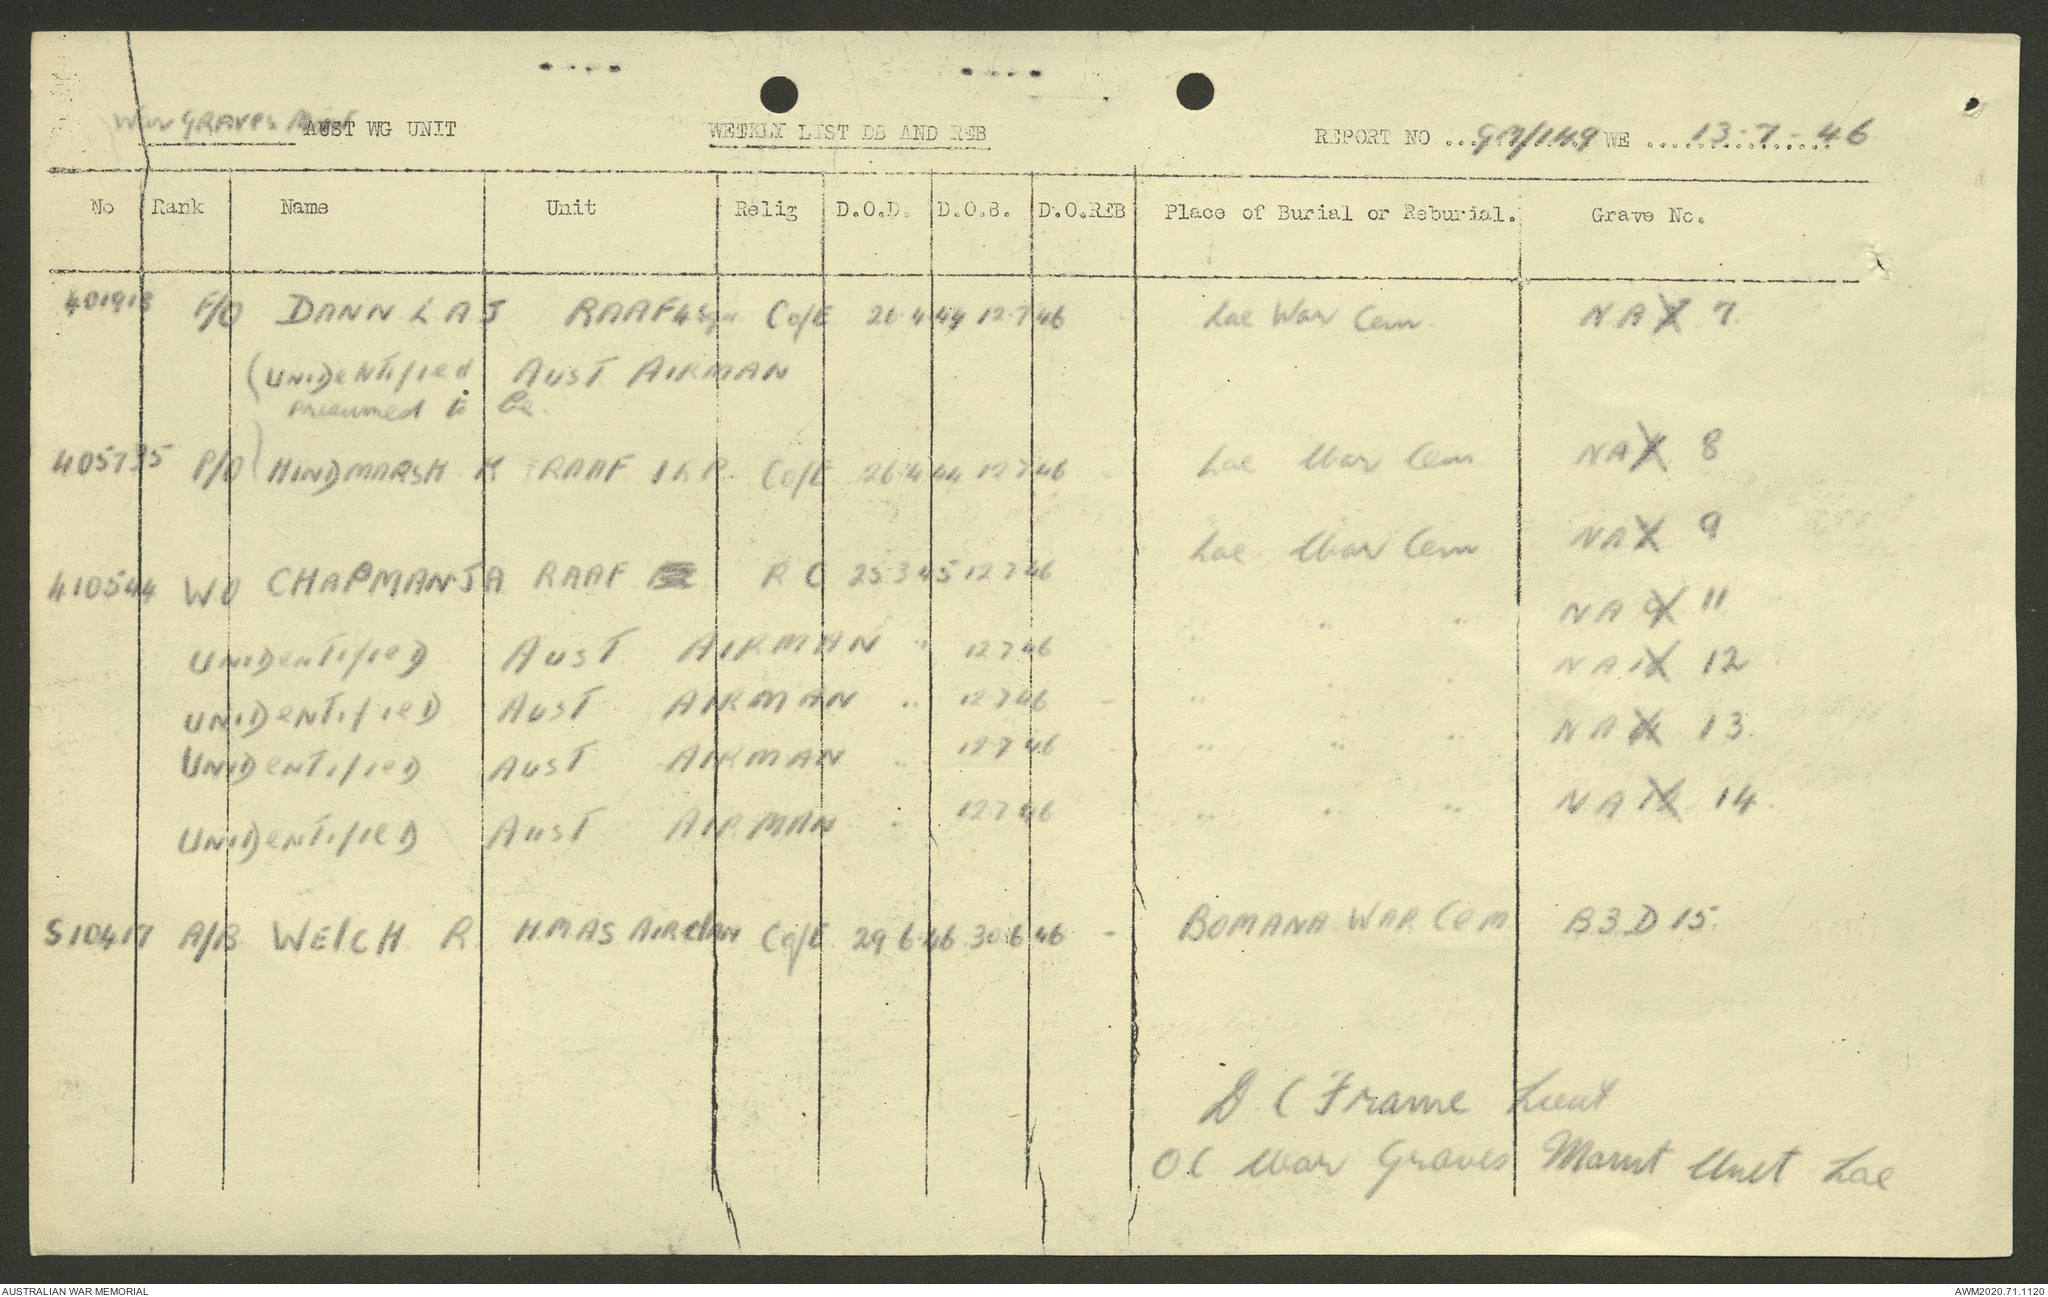 War Graves Maint AUST WG UNIT WEEKLY LIST DB AND REB REPORT NO ...GM/149 WE ....13-7-46
No Rank Name Unit Relig D.O.D. D.O.B. D.O.REB Place of Burial or Reburial. Grave No.
401913 F/O DANN L A J RAAF 4 Sqn Co/E 26 4 44 12 7 46 Lae War Cem NA 7
(UNIDENTIFIED AUST AIRMAN
presumed to be.
405735 P/O HINDMARSH K RAAF Co/E 26 4 44 12 7 46 Lae War Cem NA 8
410544 WO CHAPMAN J A RAAF RC 25 3 45 12 7 46 Lae War Cem NA 9
UNIDENTIFIED AUST AIRMAN " 12 7 46 " " " NA 11
UNIDENTIFIED AUST AIRMAN " 12 7 46 - " " " NA 12
UNIDENTIFIED AUST AIRMAN " 12 7 46 " " " NA 13
UNIDENTIFIED AUST AIRMAN " 12 7 46 " " " NA 14
S10417 A/B WELCH R HMAS Co/E 29 6 46 30 6 46 - BOMANA WAR CEM B3 D 15.
D C Frame Lieut
OC War Graves Maint Unit Lae
AUSTRALIAN WAR MEMORIAL AWM2020.71.1120